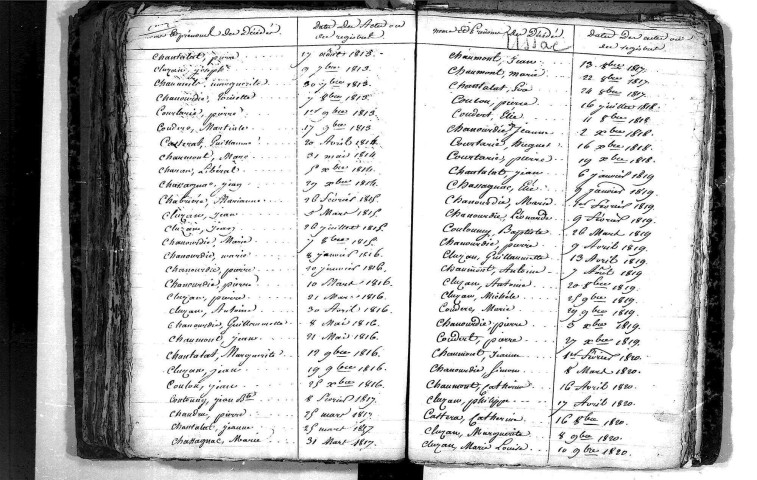 nom et prénom du Décédé
date des actes au
registre
Chantalat, pierre 17 août 1813.
Cluzan, joseph 9 7bre 1813.
Chaumont, marguerite 30 7bre 1813.
Chanourdie, 7 8bre 1813.
Courtarie, pierre 1er 9bre 1813
Coudere, Martiale 17 9bre 1813
Guillaume 20 Avril 1814.
Chaumont, Marie 31 mai 1814
Libéral 5 xbre 1814.
Chassagnac, jean 29 xbre 1814.
Marianne 26 février 1815.
Cluzan, jean 5 Mars 1815.
Cluzan, 26 juillet 1815.
Chanourdie, Marie 7 8bre 1815.
Chanourdie, marie 8 janvier 1816.
Chanourdie, pierre 20 janvier 1816.
Chanourdie, pierre 10 Mars 1816.
Cluzan, pierre 21 Mars 1816.
Cluzan, Antoine 30 Avril 1816.
Chanourdie, Guillaumette 8 Mai 1816.
Chaumont, jeanne 21 Mai 1816.
Chantalat, Marguerite 12 9bre 1816.
Cluzan, jean 19 9bre 1816.
Coulon, jean 25 xbre 1816.
jean Bte 8 février 1817.
pierre 25 mars 1817
Chantalat, jeanne 25 mars 1817
Chassagnac, Marie 31 Mars 1817.
nom et Prénom du Décédé
Issac
dates des actes au
registre
Chaumont, Jean 13 8bre 1817.
Chaumont, marie 22 8bre 1817.
Chantalat, 28 8bre 1817.
Coulon, pierre 16 juillet 1818.
Coudert, Elie 11 8bre 1818
Chanourdie, Jeanne 2 xbre 1818.
Courtarie, hugues 16 xbre 1818.
Courtarie, pierre 19 xbre 1818.
Chantalat, jean 6 janvier 1819
Chassagnac, Elie 9 janvier 1819.
Chanourdie, Marie 1er février 1819.
Chanourdie, Léonarde 9 février 1819.
Baptiste 26 Mars 1819
Chanourdie, pierre 9 Avril 1819.
Cluzan, Guillaumette 13 Avril 1819.
Chaumont, Antoine 7 Août 1819.
Cluzan, Antoine 20 8bre 1819.
Cluzan, 25 9bre 1819.
Coudere, Marie 29 9bre 1819.
Chanourdie, pierre 5 xbre 1819.
Coudert, pierre 27 xbre 1819.
Chaumont, Jeanne 1er février 1820.
Chanourdie, Simon 8 Mars 1820.
Chaumont, Catherine 16 Avril 1820.
Cluzan, philippe 17 Avril 1820.
Catherine 16 8bre 1820.
Cluzan, Marguerite 8 9bre 1820.
Cluzan, Marie Louise 10 9bre 1820.